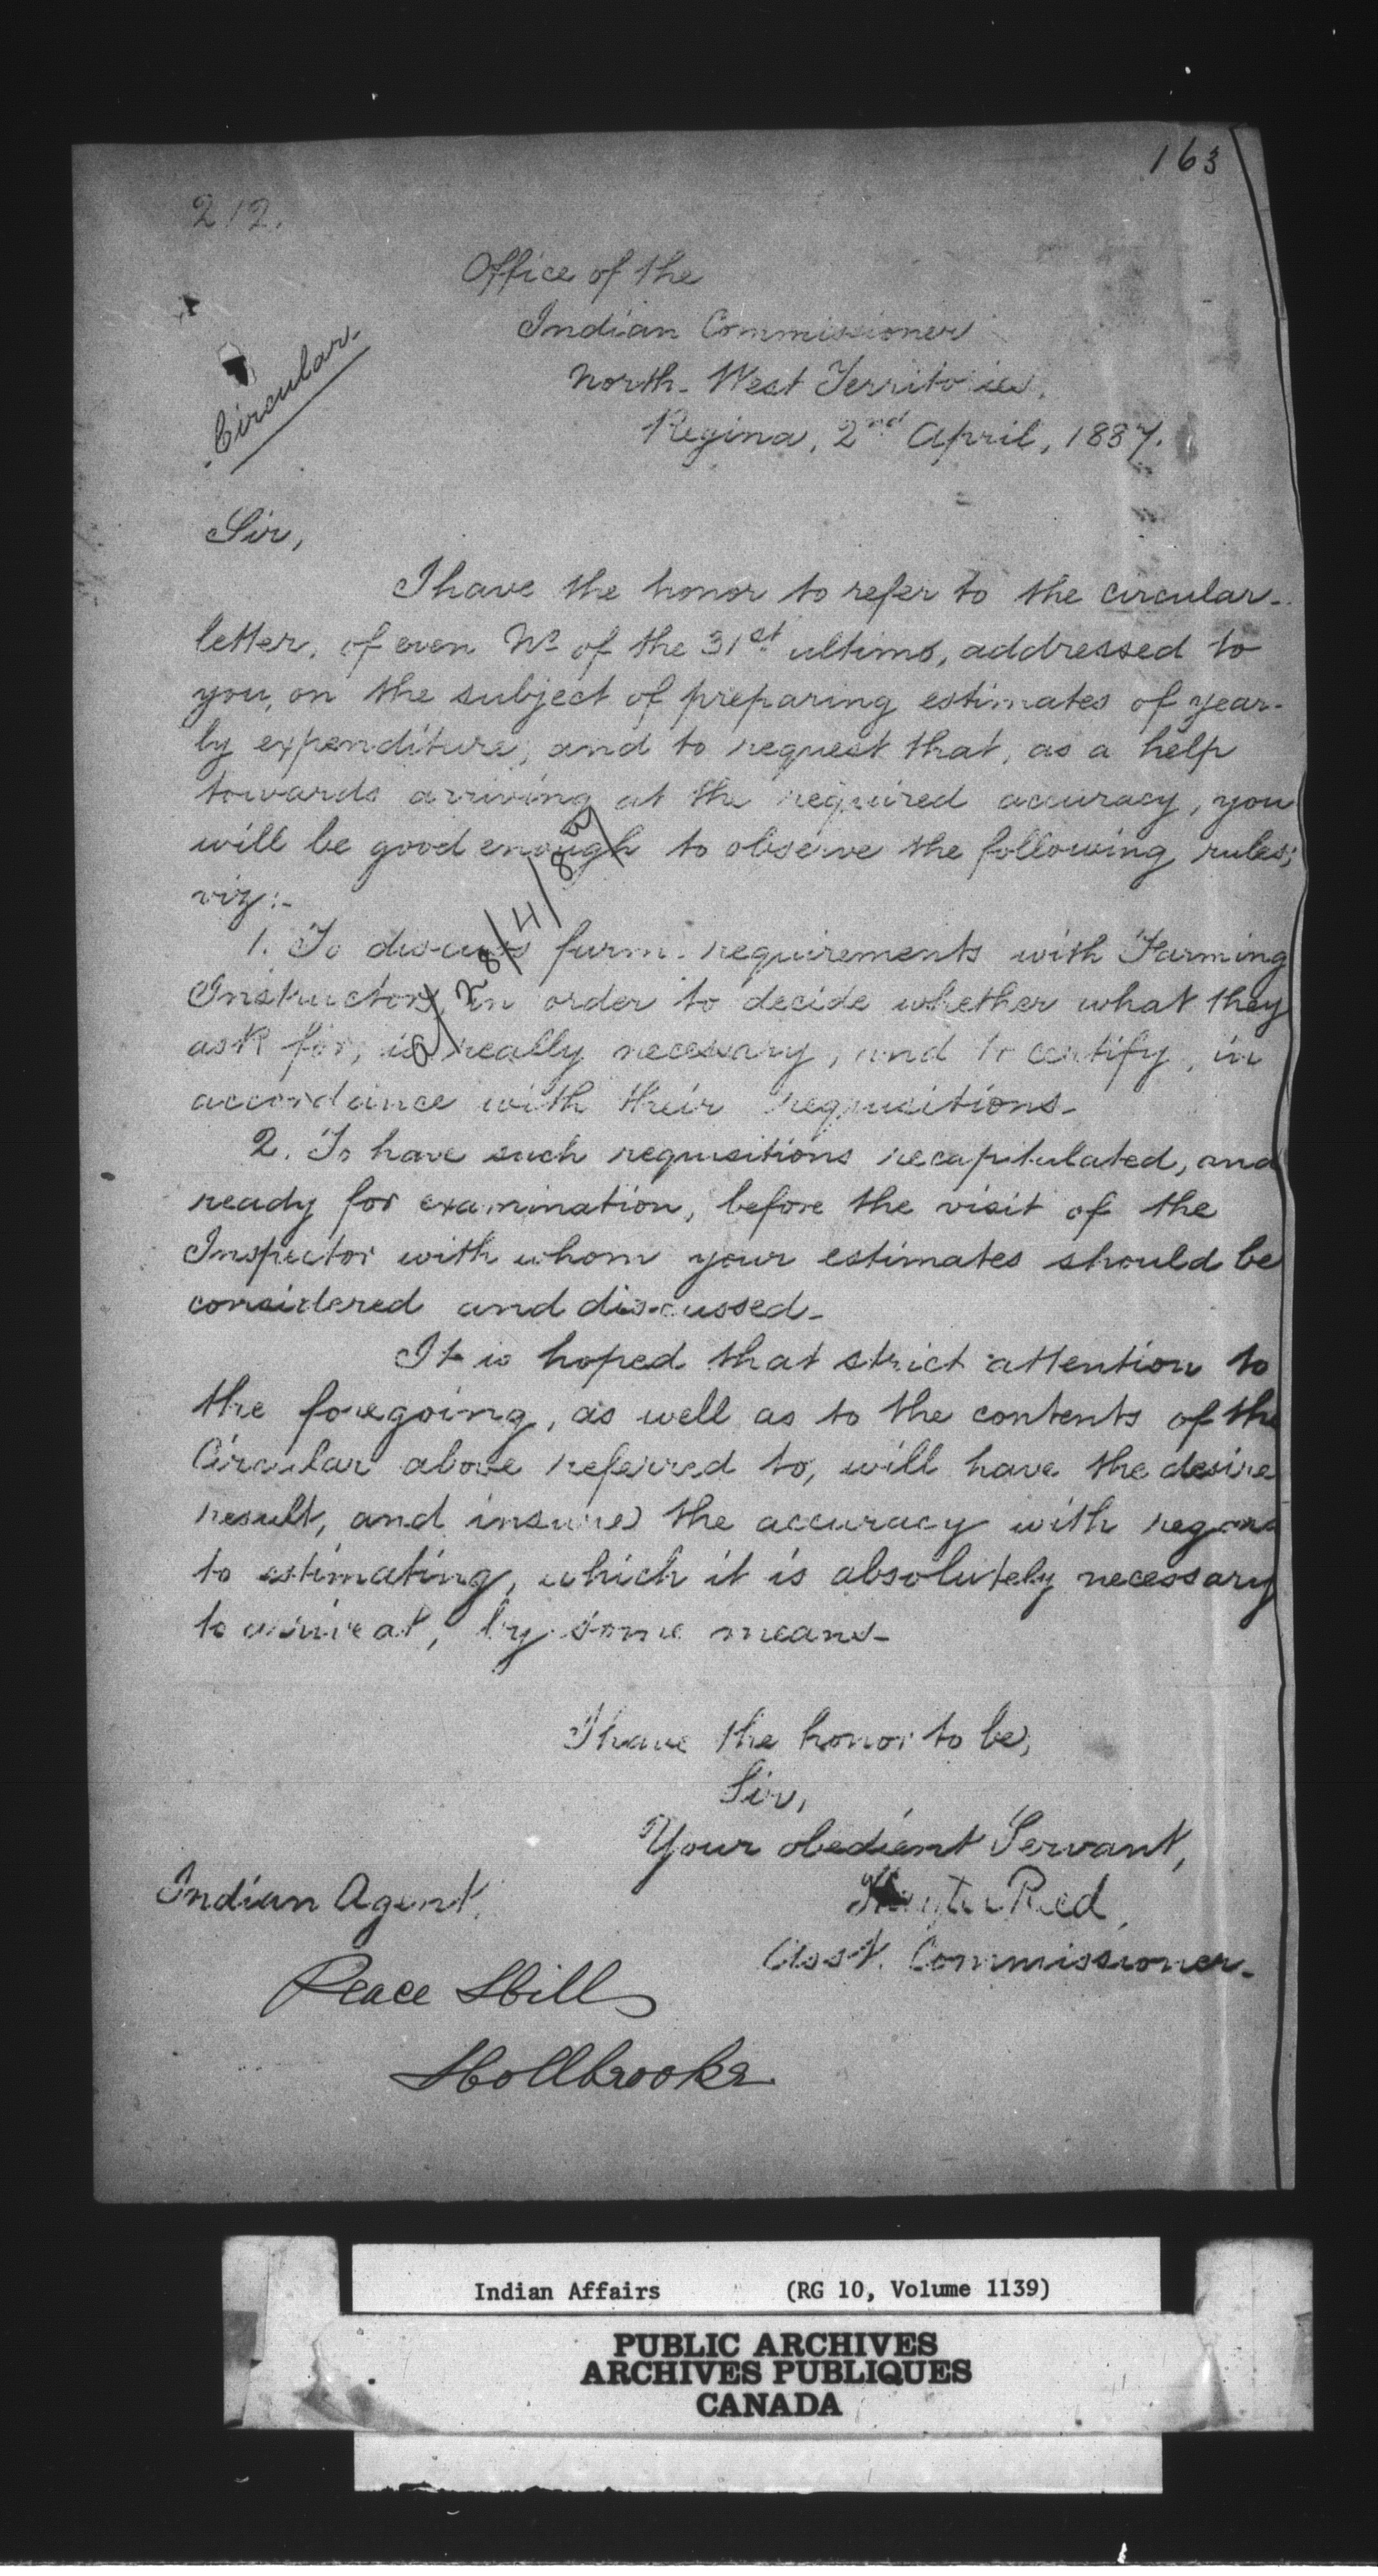 163
212.
Office of the
Indian Commissioner
North-West Territories,
Regina, 2nd April, 1887.
Circular.
Sir,
I have the honor to refer to the circular-
letter, of even No of the 31st ultimo, addressed to
you, on the subject of preparing estimates of year-
ly expenditure, and to request that, as a help
towards arriving at the required accuracy, you
will be good enough to observe the following rules;
viz:-
1. To discuss farm requirements with Farming
Instructors, in order to decide whether what they
ask for, is really necessary, and to certify, in
accordance with their requisitions-
2. To have such requisitions recapitulated, and
ready for examination, before the visit of the
Inspector with whom your estimates should be
considered and discussed-
It is hoped that strict attention to
the foregoing, as well as to the contents of the
Circular above referred to, will have the desire
result, and insure the accuracy with regard
to estimating, which it is absolutely necessary
to arrive at, by some means-
I have the honor to be,
Sir,
Your obedient Servant,
Hayter Reed,
Asst. Commissioner-
Indian Agent,
Peace Hills
Hollbrooke
Indian Affairs (RG 10, Volume 1139)
PUBLIC ARCHIVES
ARCHIVES PUBLIQUES
CANADA